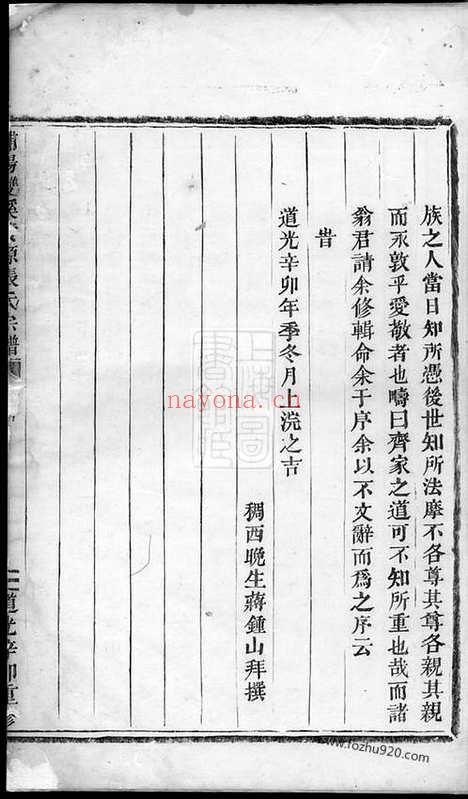 族之人當日知所憑後世知所法摩不各尊其尊各親其親
而永敦乎愛敬者也疇曰齊家之道可不知所重也哉而諸
翁君請余修輯命余于序余以不文辭而爲之序云
旹
道光辛卯年季冬月上浣之吉
稠西晚生蔣鍾山拜撰
張氏宗譜
道光辛卯重修
nayona.cn
www.fozhu920.com